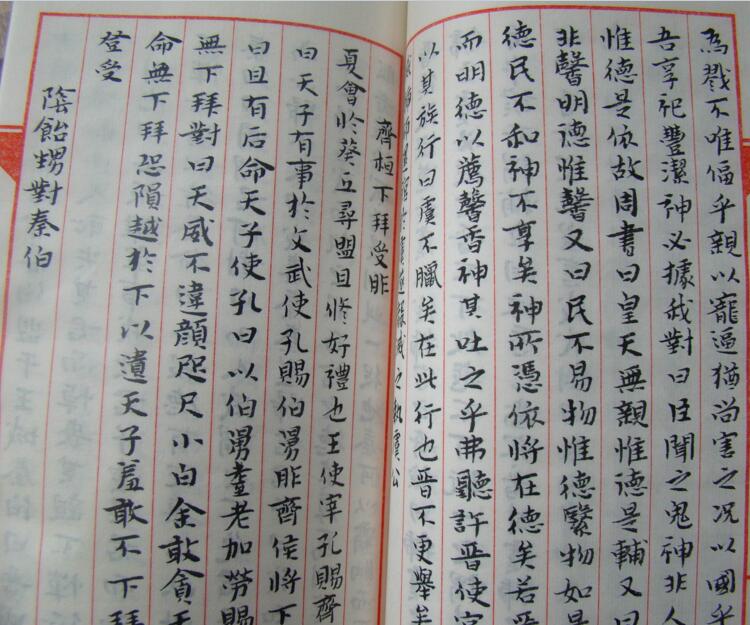 為戮不唯偪乎親以寵逼猶尚害之況以國乎
吾享祀豐潔神必據我對曰臣聞之鬼神非人
惟德是依故周書曰皇天無親惟德是輔又曰
非馨明德惟馨又曰民不易物惟德繄物如是
德民不和神不享矣神所憑依將在德矣若晉
而明德以薦馨香神其吐之乎弗聽許晉使宮
以其族行曰虞不臘矣在此行也晉不更舉矣
館於虞遂襲滅之執虞公
齊桓下拜受胙
夏會於葵丘尋盟且修好禮也王使宰孔賜齊
曰天子有事於文武使孔賜伯舅胙齊侯將下
曰且有后命天子使孔曰以伯舅耋老加勞賜
無下拜對曰天威不違顏咫尺小白余敢貪天
命無下拜恐隕越於下以遺天子羞敢不下拜
登受
陰飴甥對秦伯